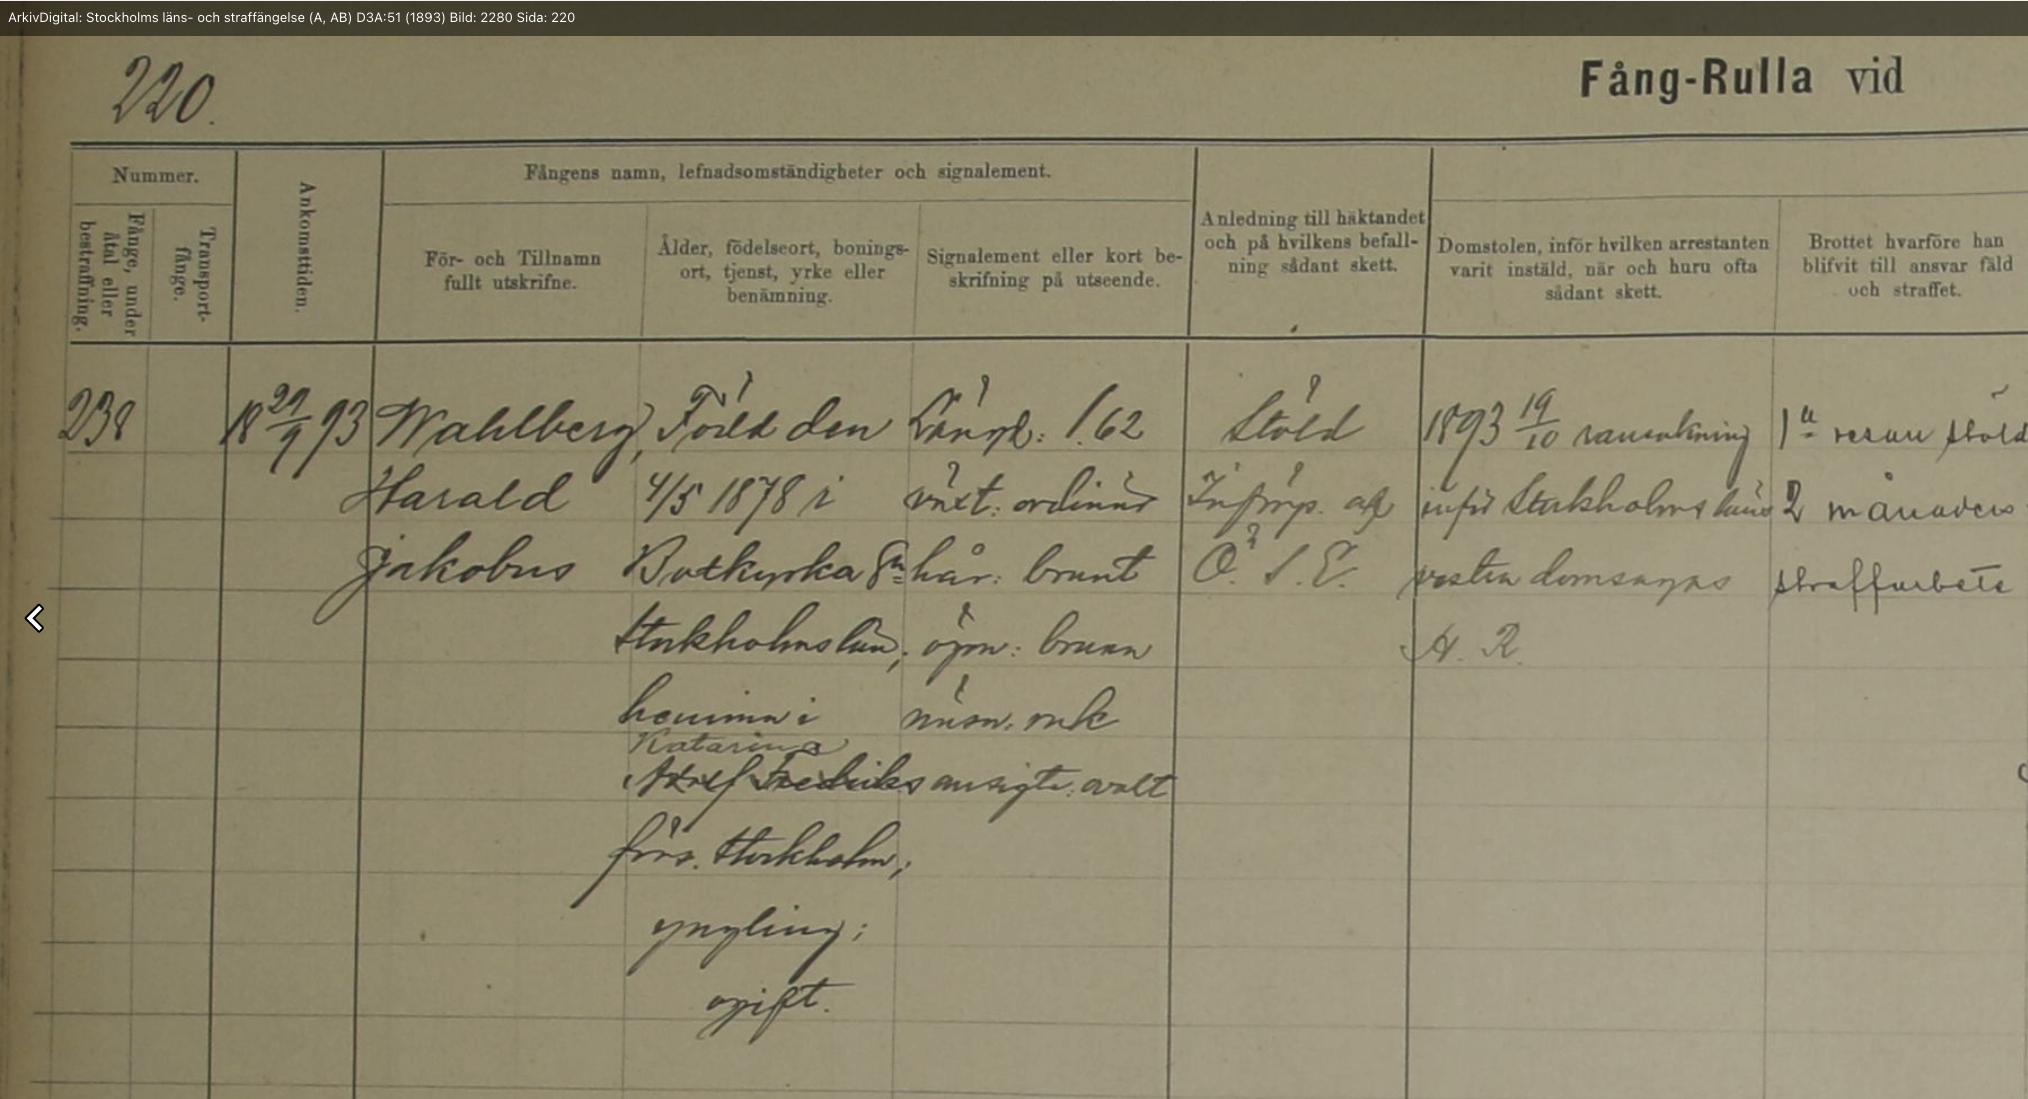 ArkivDigital: Stockholms läns- och straffängelse (A, AB) D3A:51 (1893) Bild: 2280 Sida: 220
220.
Fång-Rulla vid
Nummer.
Fånge, under åtal eller bestraffning.
Transport-fånge.
Ankomsttiden.
Fångens namn, lefnadsomständigheter och signalement.
För- och Tillnamn
fullt utskrifne.
Ålder, födelseort, bonings-
ort, tjenst, yrke eller
benämning.
Signalement eller kort be-
skrifning på utseende.
Anledning till häktandet
och på hvilkens befall-
ning sådant skett.
Domstolen, inför hvilken arrestanten
varit instäld, när och huru ofta
sådant skett.
Brottet hvarföre han
blifvit till ansvar fäld
och straffet.
238
18 29/9 93
Wahlberg,
Harald
Jakobus
Född den
4/5 1878 i
Botkyrka Sn
Stockholms län;
hemma i
Katarina
Adolf Fredriks
förs. Stockholm;
yngling;
ogift.
Längd: 1.62
växt: ordinär
hår: brunt
ögon: bruna
näsa: rak
ansigte: ovalt
Stöld
Införp. af
Ö. S. E.
1893 19/10 ransakning
inför Stockholms läns
vestra domsagas
H. R.
1a resan stöld
2 månaders
straffarbete